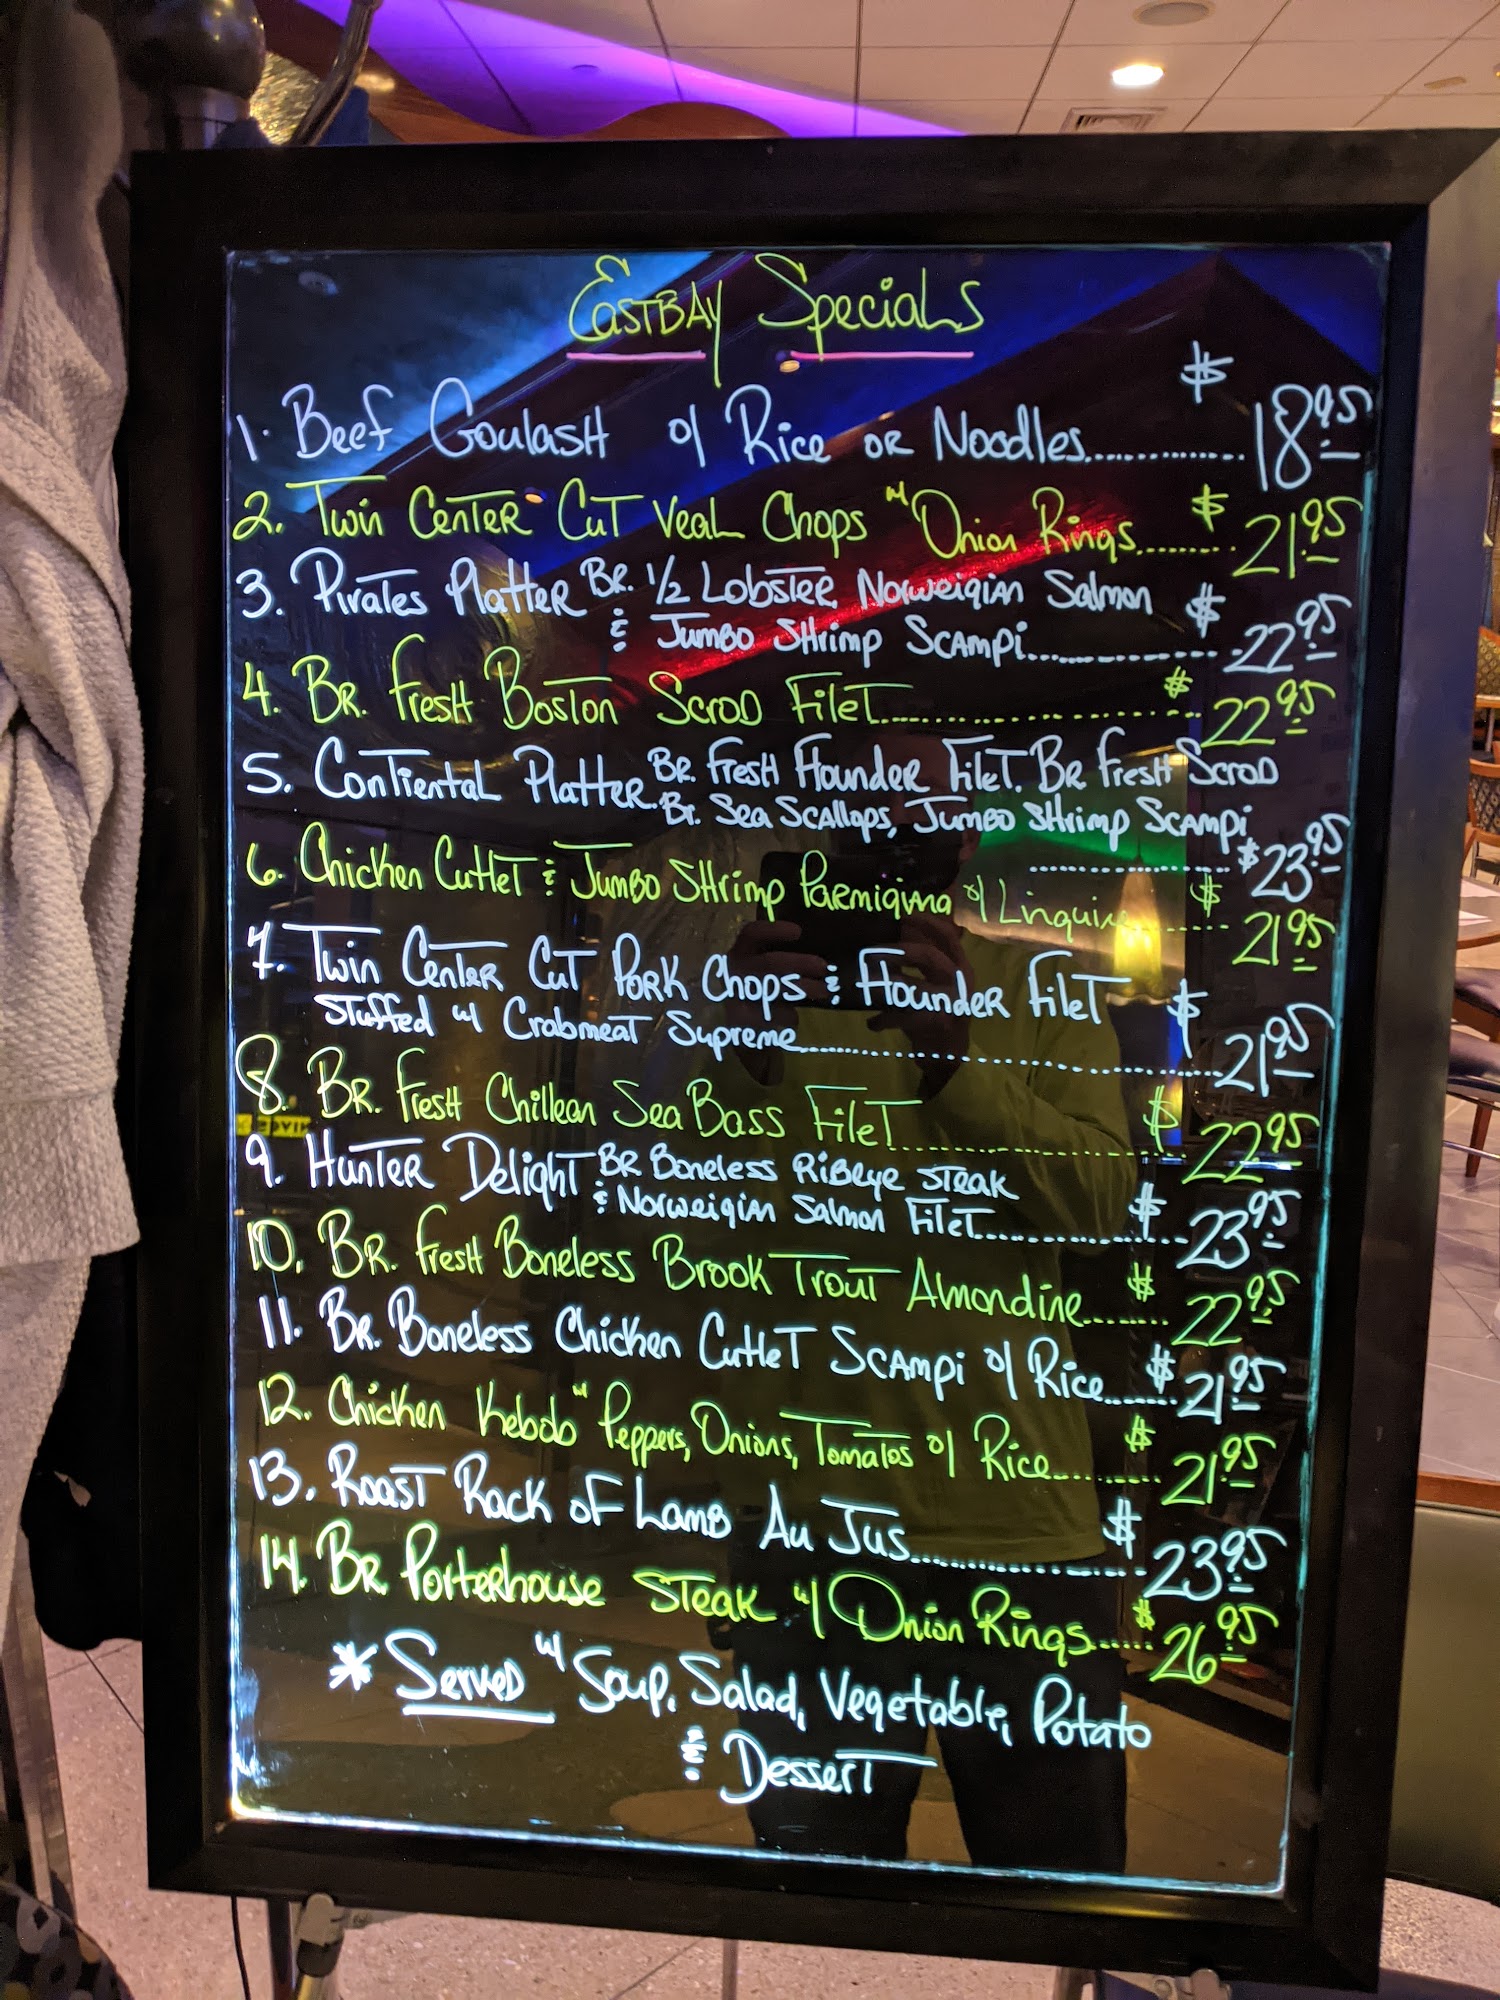 EastBay Specials
1. Beef Goulash o/ Rice or Noodles.............. $18.95
2. Twin Center Cut Veal Chops w/ Onion Rings........ $21.95
3. Pirates Platter Br. 1/2 Lobster, Norweigian Salmon
& Jumbo Shrimp Scampi................ $22.95
4. Br. Fresh Boston Scrod Filet........................ $22.95
5. Contiental Platter. Br. Fresh Flounder Filet. Br Fresh Scrod
Br. Sea Scallops, Jumbo Shrimp Scampi
................ $23.95
6. Chicken Cutlet & Jumbo Shrimp Parmigiana o/ Linguine......... $21.95
7. Twin Center Cut Pork Chops & Flounder Filet
Stuffed w/ Crabmeat Supreme.............................. $21.95
8. Br. Fresh Chillean Sea Bass Filet...................... $22.95
9. Hunter Delight Br Boneless Ribeye Steak
& Norweigian Salmon Filet................ $23.95
10. Br. Fresh Boneless Brook Trout Almondine........ $22.95
11. Br. Boneless Chicken Cutlet Scampi o/ Rice....... $21.95
12. Chicken Kebob w/ Peppers, Onions, Tomatos o/ Rice.......... $21.95
13. Roast Rack of Lamb Au Jus.................. $23.95
14. Br. Porterhouse Steak w/ Onion Rings...... $26.95
* Served w/ Soup, Salad, Vegetable, Potato
& Dessert